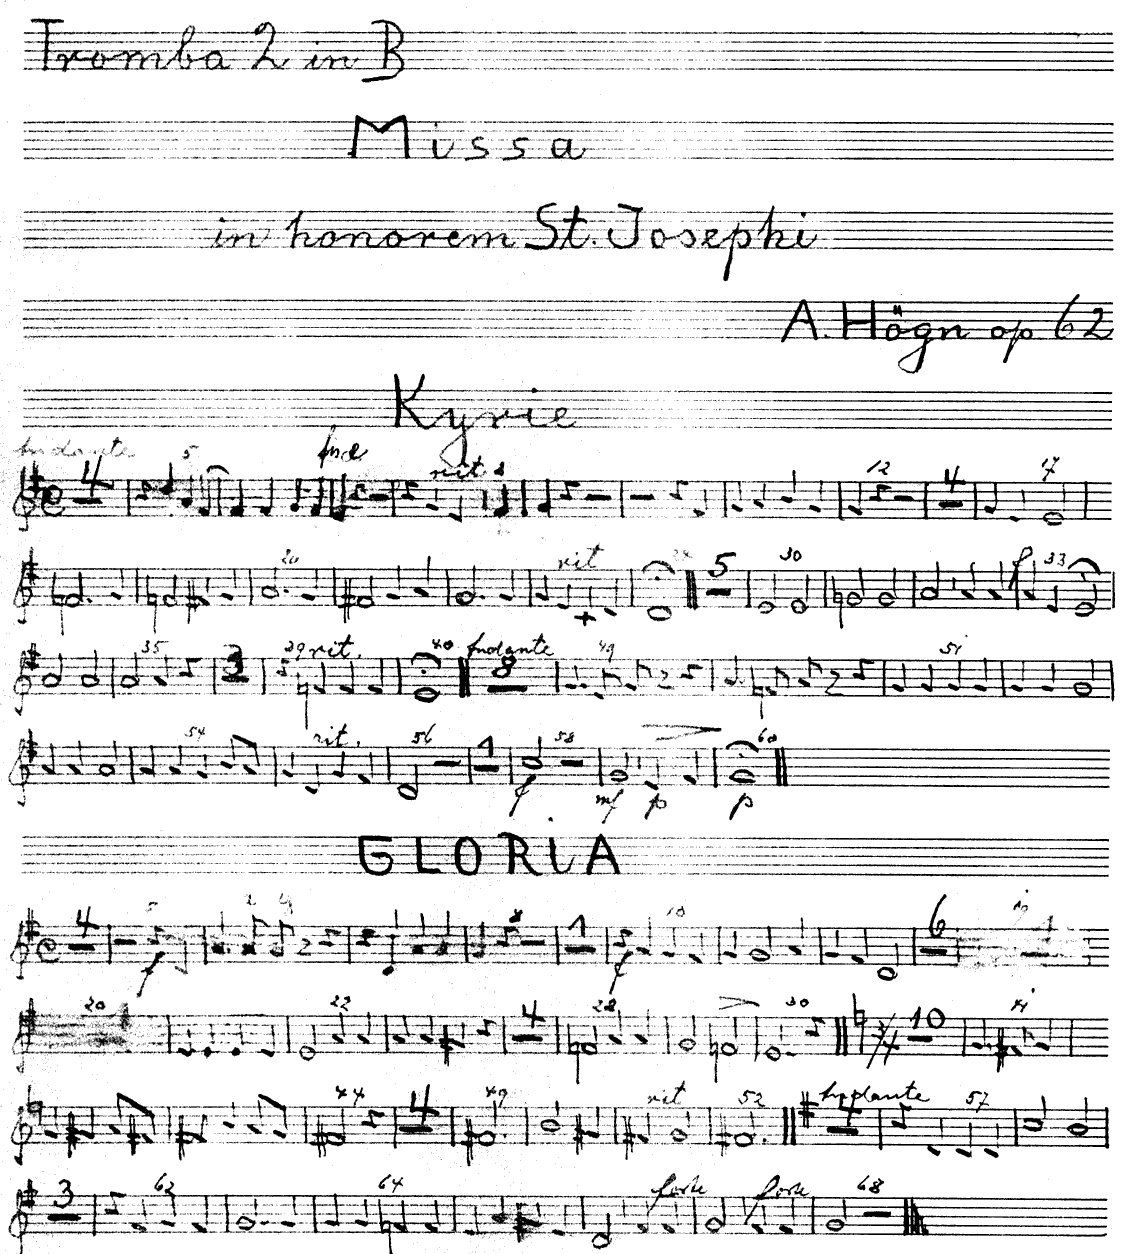 Tromba 2 in B
Missa
in honorem St. Josephi
A. Högn op 62
Kyrie
Andante 5 rit 8 12 17
4 4
20 rit 30 f 33
5
35 39 rit. 40 Andante 49 51
3 8
54 rit. 56 58 60
1
f mf p p
GLORIA
4 5 8 1 10 6
f f
20 22 4 28 30 10 41
3/4
44 4 49 rit 52 Andante 57
4
3 62 64 forte forte 68